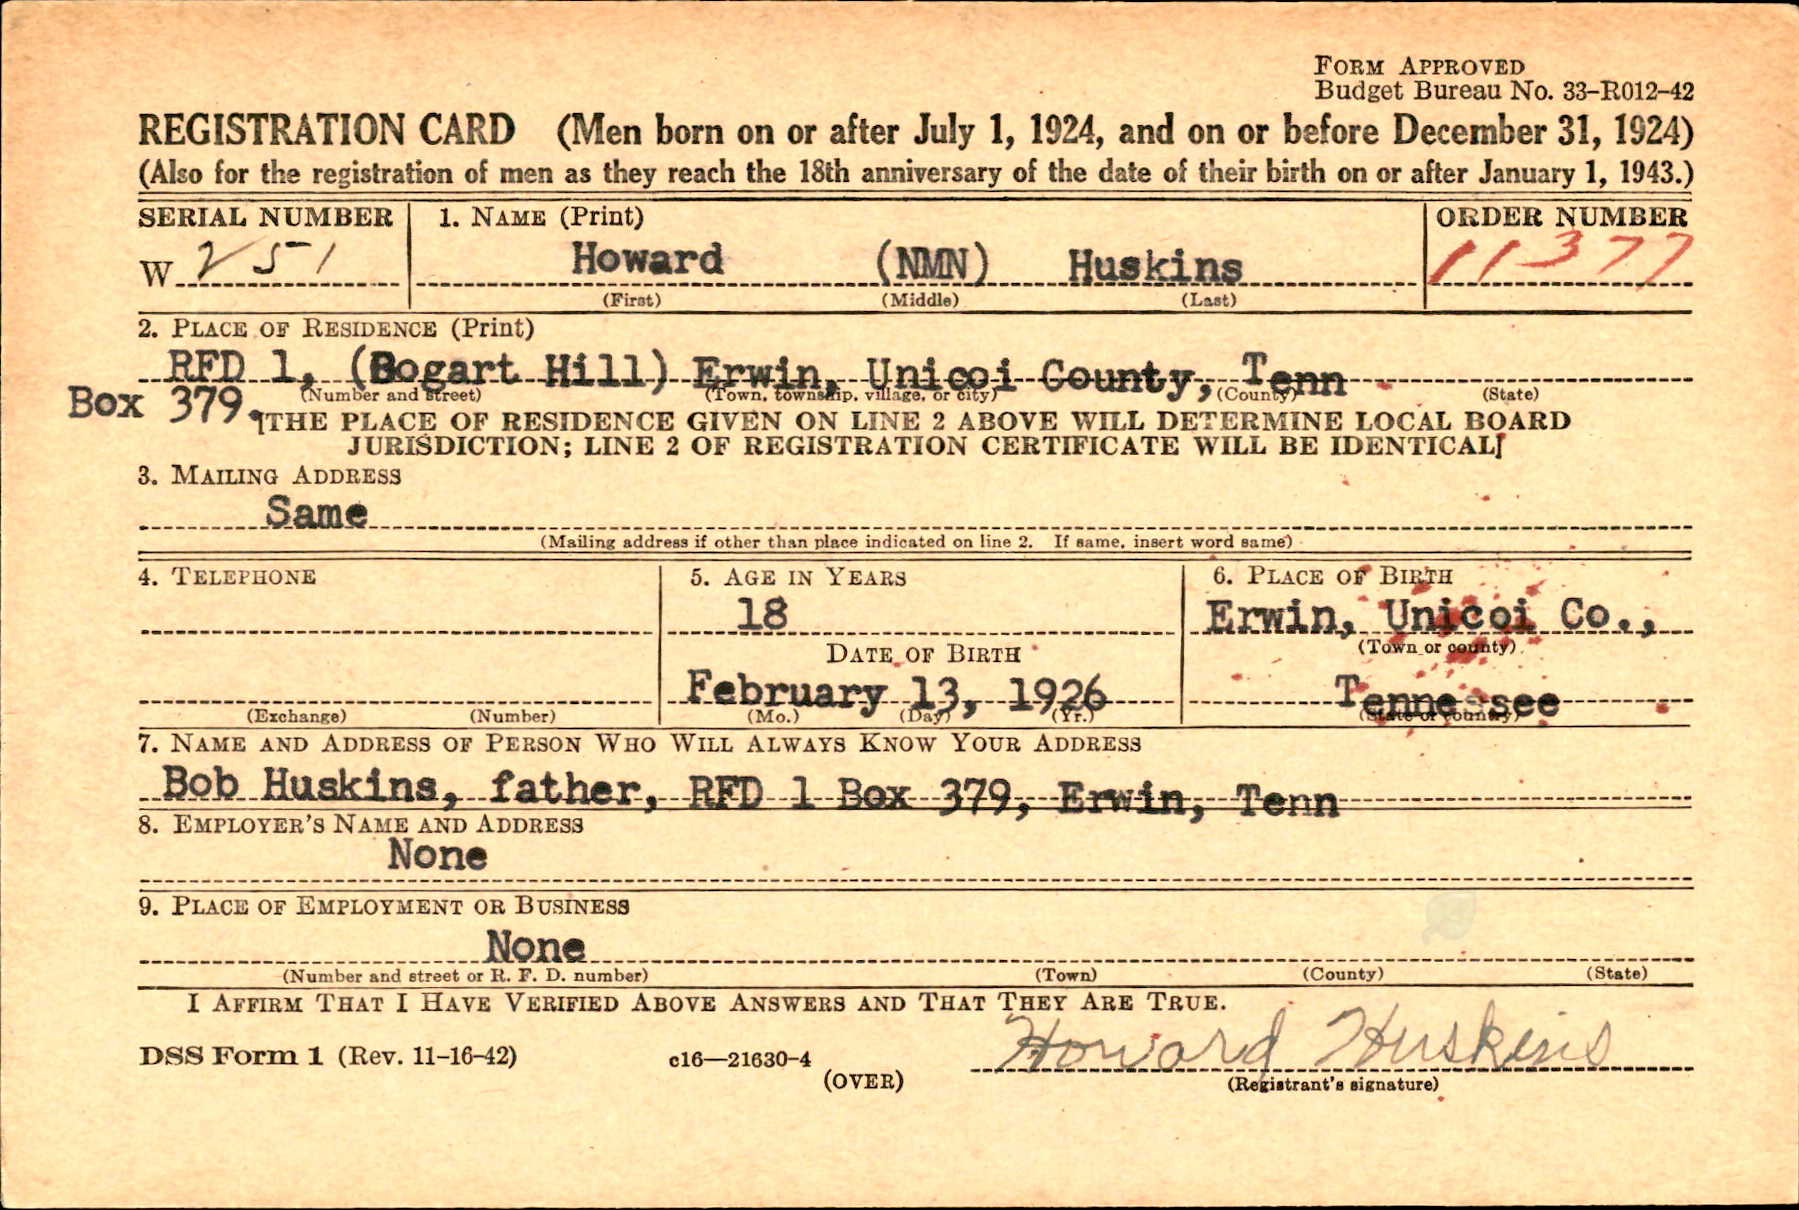 FORM APPROVED
Budget Bureau No. 33-R012-42
REGISTRATION CARD (Men born on or after July 1, 1924, and on or before December 31, 1924)
(Also for the registration of men as they reach the 18th anniversary of the date of their birth on or after January 1, 1943.)
SERIAL NUMBER 1. NAME (Print) ORDER NUMBER
W 251 Howard (NMN) Huskins 11377
(First) (Middle) (Last)
2. PLACE OF RESIDENCE (Print)
RFD 1, (Bogart Hill) Erwin, Unicoi County, Tenn
Box 379. (Number and street) (Town, township, village, or city) (County) (State)
[THE PLACE OF RESIDENCE GIVEN ON LINE 2 ABOVE WILL DETERMINE LOCAL BOARD
JURISDICTION; LINE 2 OF REGISTRATION CERTIFICATE WILL BE IDENTICAL]
3. MAILING ADDRESS
Same
(Mailing address if other than place indicated on line 2. If same, insert word same)
4. TELEPHONE 5. AGE IN YEARS 6. PLACE OF BIRTH
18 Erwin, Unicoi Co.,
DATE OF BIRTH (Town or county)
February 13, 1926 Tennessee
(Exchange) (Number) (Mo.) (Day) (Yr.) (State or country)
7. NAME AND ADDRESS OF PERSON WHO WILL ALWAYS KNOW YOUR ADDRESS
Bob Huskins, father, RFD 1 Box 379, Erwin, Tenn
8. EMPLOYER'S NAME AND ADDRESS
None
9. PLACE OF EMPLOYMENT OR BUSINESS
None
(Number and street or R. F. D. number) (Town) (County) (State)
I AFFIRM THAT I HAVE VERIFIED ABOVE ANSWERS AND THAT THEY ARE TRUE.
DSS Form 1 (Rev. 11-16-42) c16—21630-4 Howard Huskins
(OVER) (Registrant's signature)